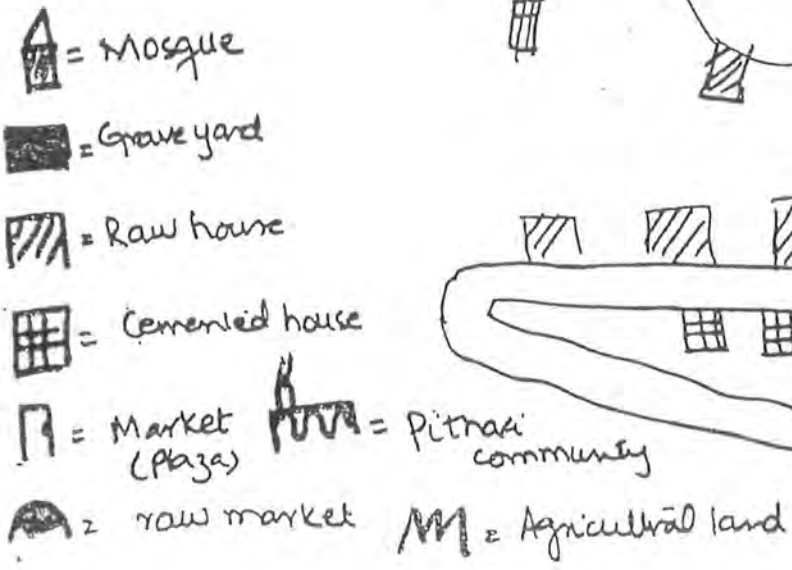 = Mosque
= Graveyard
= Raw house
= Cemented house
= Market
(Plaza)
= Pitnasi
community
= raw market
= Agricultural land